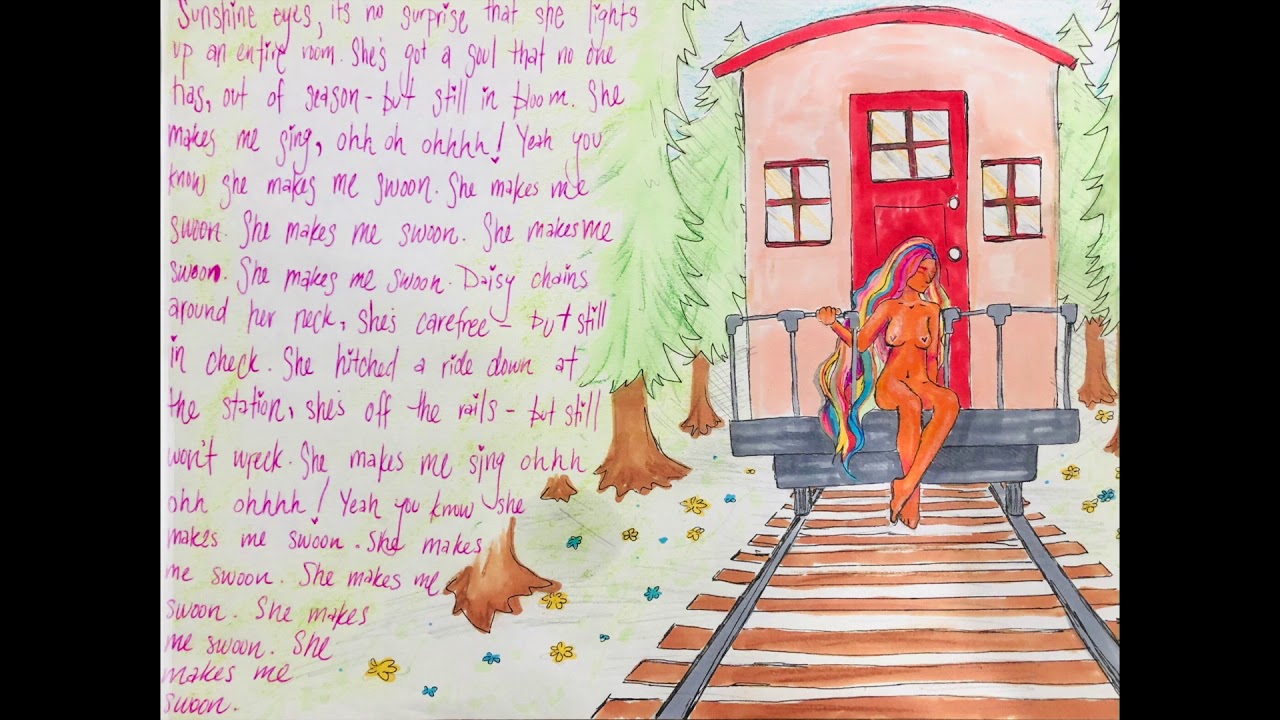 Sunshine eyes, its no surprise that she lights
up an entire room. She's got a soul that no one
has, out of season - but still in bloom. She
makes me sing, ohh oh ohhhh! Yeah you
know she makes me swoon. She makes me
swoon. She makes me swoon. She makes me
swoon. She makes me swoon. Daisy chains
around her neck, she's carefree - but still
in check. She hitched a ride down at
the station, she's off the rails - but still
won't wreck. She makes me sing ohhh
ohh ohhhh! Yeah you know she
makes me swoon. She makes
me swoon. She makes me
swoon. She makes
me swoon. She
makes me
swoon.